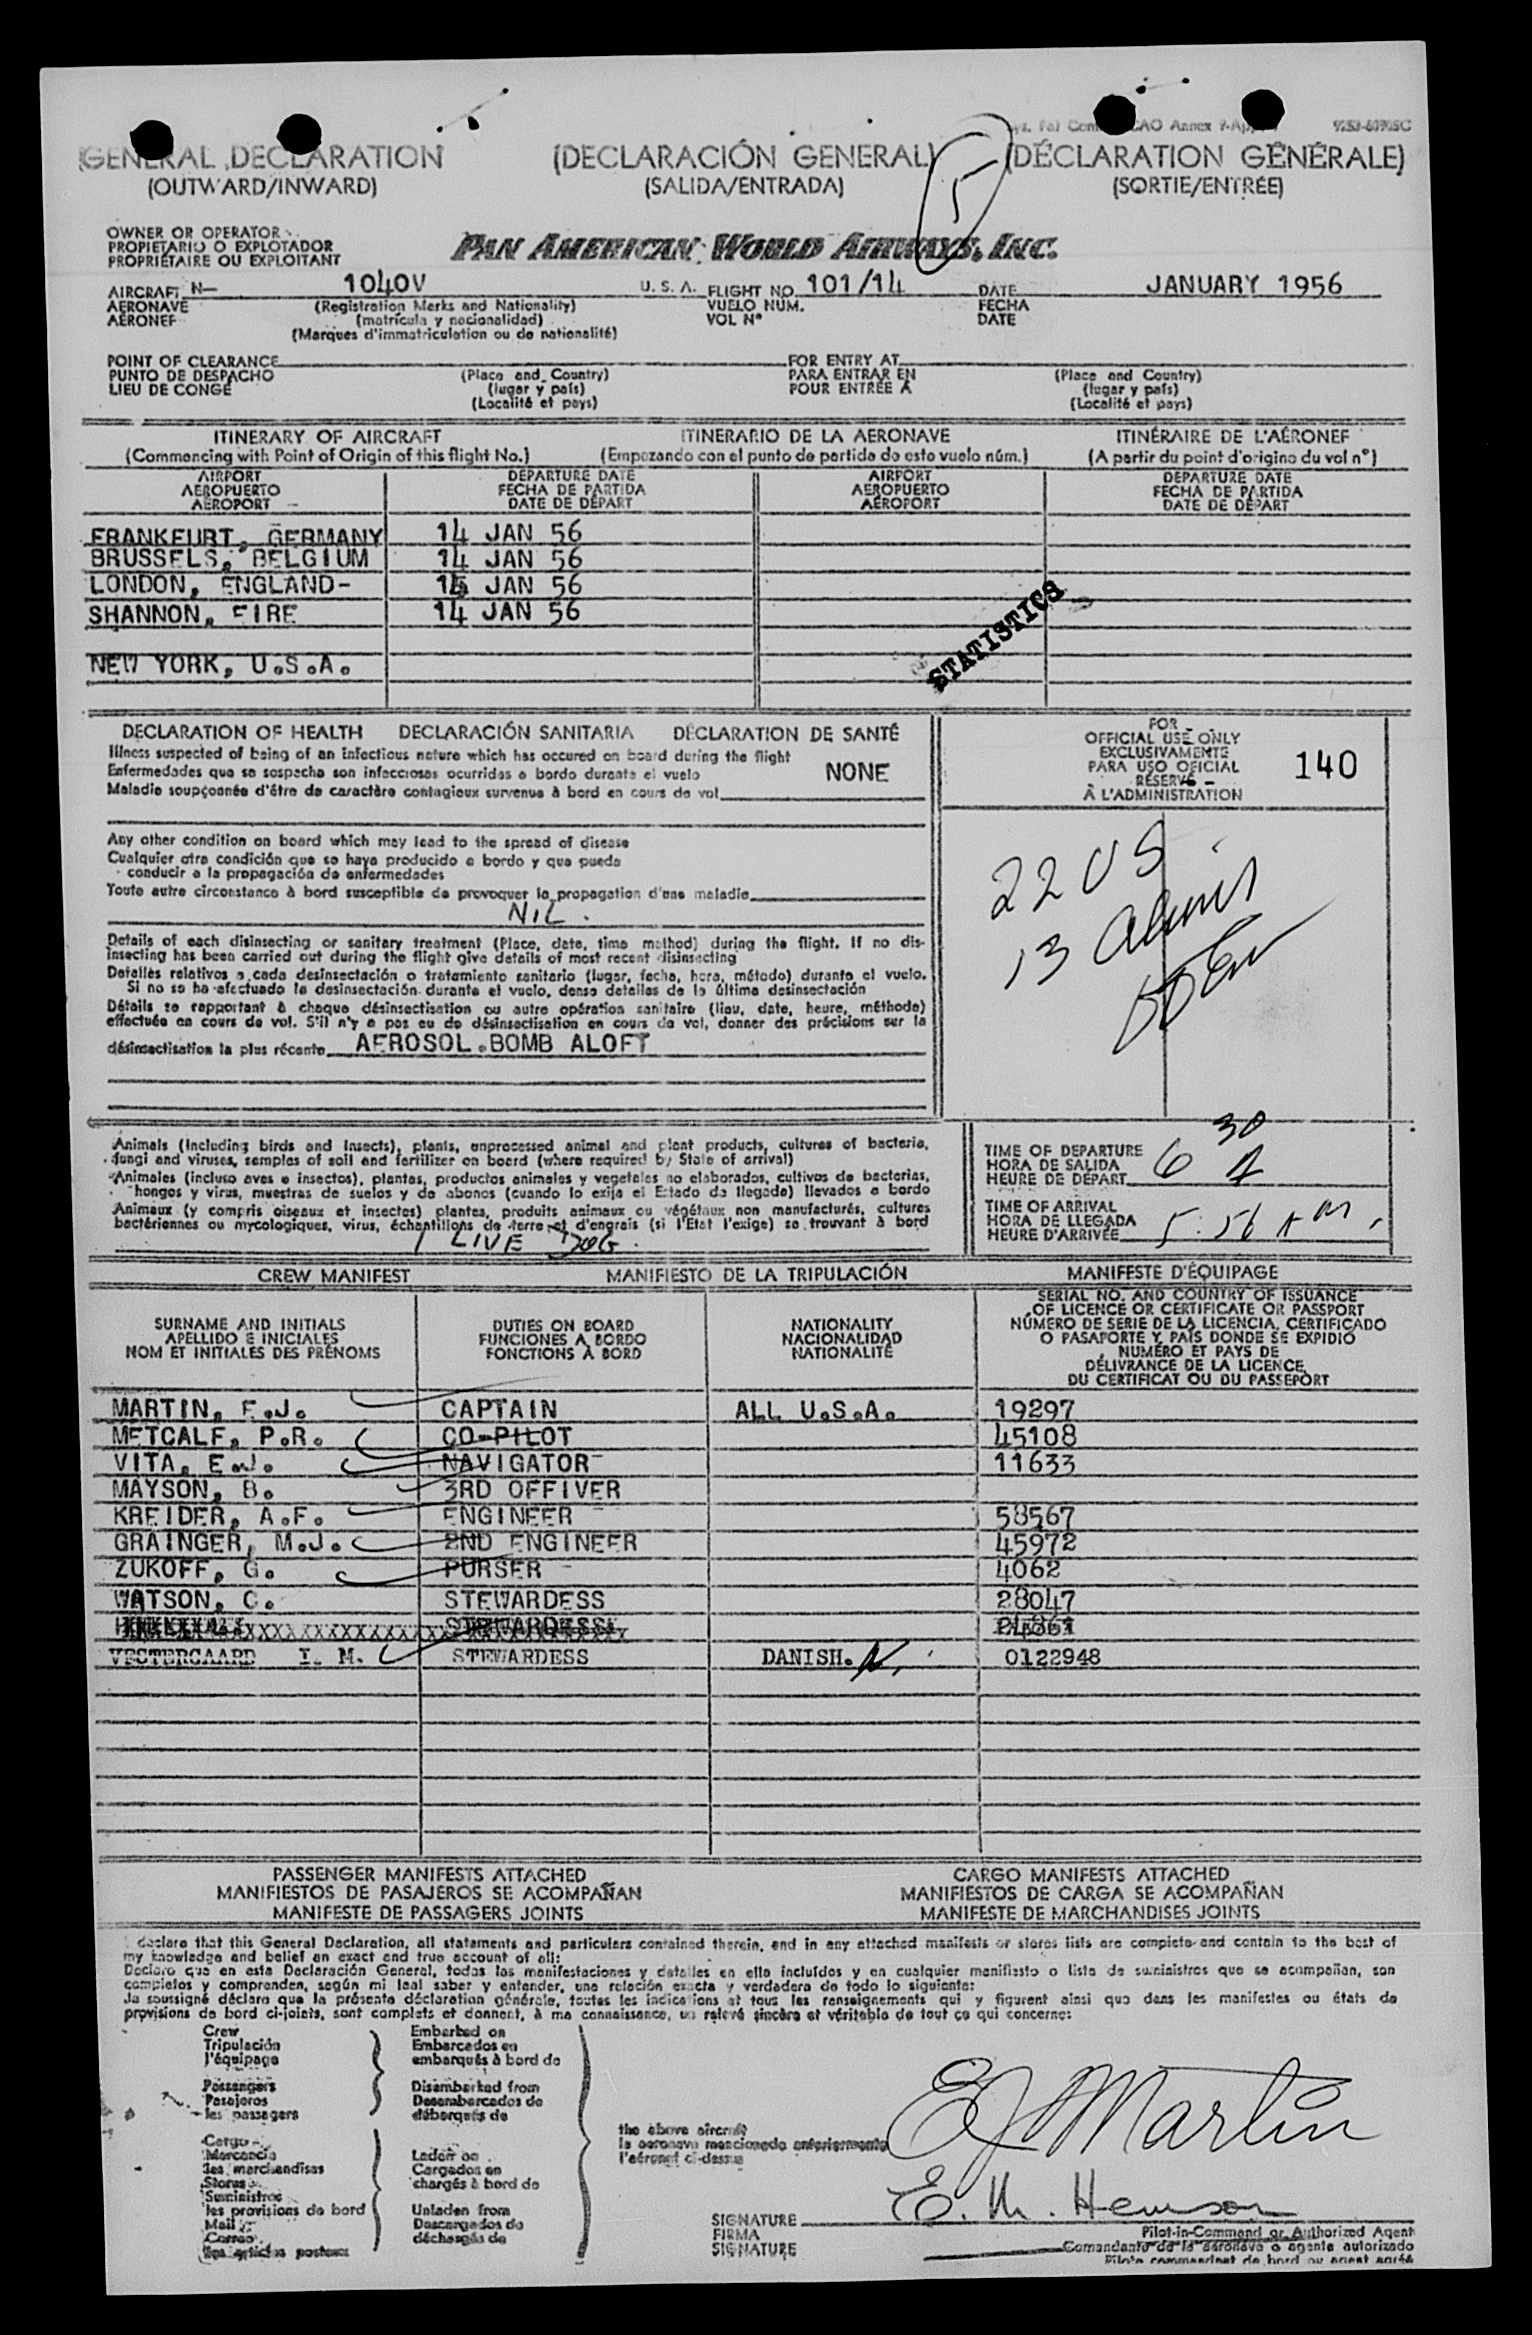 GENERAL DECLARATION (DECLARACIÓN GENERAL) (DÉCLARATION GÉNÉRALE)
(OUTWARD/INWARD) (SALIDA/ENTRADA) (SORTIE/ENTRÉE)
5
OWNER OR OPERATOR
PROPIETARIO O EXPLOTADOR
PROPRIÉTAIRE OU EXPLOITANT
PAN AMERICAN WORLD AIRWAYS, INC.
AIRCRAFT N- 1040V U. S. A. FLIGHT NO. 101/14 DATE JANUARY 1956
AERONAVE (Registration Marks and Nationality) VUELO NUM. FECHA
AÉRONEF (matrícula y nacionalidad) VOL N° DATE
(Marques d'immatriculation ou de nationalité)
POINT OF CLEARANCE FOR ENTRY AT
PUNTO DE DESPACHO (Place and Country) PARA ENTRAR EN (Place and Country)
LIEU DE CONGÉ (lugar y país) POUR ENTRÉE À (lugar y país)
(Localité et pays) (Localité et pays)
ITINERARY OF AIRCRAFT ITINERARIO DE LA AERONAVE ITINÉRAIRE DE L'AÉRONEF
(Commencing with Point of Origin of this flight No.) (Empezando con el punto de partida de este vuelo núm.) (A partir du point d'origine du vol n°)
AIRPORT DEPARTURE DATE AIRPORT DEPARTURE DATE
AEROPUERTO FECHA DE PARTIDA AEROPUERTO FECHA DE PARTIDA
AÉROPORT DATE DE DÉPART AÉROPORT DATE DE DÉPART
FRANKFURT, GERMANY 14 JAN 56
BRUSSELS, BELGIUM 14 JAN 56
LONDON, ENGLAND- 14 JAN 56
SHANNON, EIRE 14 JAN 56
NEW YORK, U.S.A.
STATISTICS
DECLARATION OF HEALTH DECLARACIÓN SANITARIA DÉCLARATION DE SANTÉ
Illness suspected of being of an infectious nature which has occured on board during the flight
Enfermedades que se sospecha son infecciosas ocurridas a bordo durante el vuelo NONE
Maladie soupçonnée d'être de caractère contagieux survenue à bord en cours de vol
FOR
OFFICIAL USE ONLY
EXCLUSIVAMENTE
PARA USO OFICIAL
RÉSERVÉ
À L'ADMINISTRATION
140
Any other condition on board which may lead to the spread of disease
Cualquier otra condición que se haya producido a bordo y que pueda
conducir a la propagación de enfermedades
Toute autre circonstance à bord susceptible de provoquer la propagation d'une maladie
NIL.
22 US
13 aliens
Details of each disinsecting or sanitary treatment (Place, date, time method) during the flight. If no dis-
insecting has been carried out during the flight give details of most recent disinsecting
Detalles relativos a cada desinsectación o tratamiento sanitario (lugar, fecha, hora, método) durante el vuelo.
Si no se ha efectuado la desinsectación durante el vuelo, dense detalles de la última desinsectación
Détails se rapportant à chaque désinsectisation ou autre opération sanitaire (lieu, date, heure, méthode)
effectuée en cours de vol. S'il n'y a pas eu de désinsectisation en cours de vol, donner des précisions sur la
désinsectisation la plus récente AEROSOL BOMB ALOFT
Animals (including birds and insects), plants, unprocessed animal and plant products, cultures of bacteria,
fungi and viruses, samples of soil and fertilizer on board (where required by State of arrival)
Animales (incluso aves e insectos), plantas, productos animales y vegetales no elaborados, cultivos de bacterias,
hongos y virus, muestras de suelos y de abonos (cuando lo exija el Estado de llegada) llevados a bordo
Animaux (y compris oiseaux et insectes) plantes, produits animaux ou végétaux non manufacturés, cultures
bactériennes ou mycologiques, virus, échantillons de terre et d'engrais (si l'Etat l'exige) se trouvant à bord
1 LIVE DOG.
TIME OF DEPARTURE
HORA DE SALIDA
HEURE DE DÉPART 6 30 A
TIME OF ARRIVAL
HORA DE LLEGADA
HEURE D'ARRIVÉE 5:56 AM
CREW MANIFEST MANIFIESTO DE LA TRIPULACIÓN MANIFESTE D'ÉQUIPAGE
SURNAME AND INITIALS
APELLIDO E INICIALES
NOM ET INITIALES DES PRÉNOMS
DUTIES ON BOARD
FUNCIONES A BORDO
FONCTIONS À BORD
NATIONALITY
NACIONALIDAD
NATIONALITÉ
SERIAL NO. AND COUNTRY OF ISSUANCE
OF LICENCE OR CERTIFICATE OR PASSPORT
NÚMERO DE SERIE DE LA LICENCIA, CERTIFICADO
O PASAPORTE Y PAÍS DONDE SE EXPIDIÓ
NUMÉRO ET PAYS DE
DÉLIVRANCE DE LA LICENCE
DU CERTIFICAT OU DU PASSEPORT
MARTIN, E.J. CAPTAIN ALL U.S.A. 19297
METCALF, P.R. CO-PILOT 45108
VITA, E.J. NAVIGATOR 11633
MAYSON, B. 3RD OFFIVER
KREIDER, A.F. ENGINEER 58567
GRAINGER, M.J. 2ND ENGINEER 45972
ZUKOFF, G. PURSER 4062
WATSON, C. STEWARDESS 28047
STEWARDESS
VESTERGAARD I. M. STEWARDESS DANISH. 0122948
PASSENGER MANIFESTS ATTACHED CARGO MANIFESTS ATTACHED
MANIFIESTOS DE PASAJEROS SE ACOMPAÑAN MANIFIESTOS DE CARGA SE ACOMPAÑAN
MANIFESTE DE PASSAGERS JOINTS MANIFESTE DE MARCHANDISES JOINTS
I declare that this General Declaration, all statements and particulars contained therein, and in any attached manifests or stores lists are complete and contain to the best of
my knowledge and belief an exact and true account of all:
Declaro que en esta Declaración General, todas las manifestaciones y detalles en ella incluídos y en cualquier manifiesto o lista de suministros que se acompañan, son
completos y comprenden, según mi leal saber y entender, una relación exacta y verdadera de todo lo siguiente:
Je soussigné déclare que la présente déclaration générale, toutes les indications et tous les renseignements qui y figurent ainsi que dans les manifestes ou états de
provisions de bord ci-joints, sont complets et donnent, à ma connaissance, un relevé sincère et véritable de tout ce qui concerne:
Crew Embarked on
Tripulación Embarcados en
l'équipage embarqués à bord de
Passengers Disembarked from
Pasajeros Desembarcados de
les passagers débarqués de
the above aircraft
la aeronave mencionada anteriormente
l'aéronef ci-dessus
EJ Martin
Cargo
Mercancía Laden on
les marchandises Cargados en
Stores chargés à bord de
Suministros
les provisions de bord Unladen from
Mail Descargados de
Correo déchargés de
les articles postaux
SIGNATURE
FIRMA
SIGNATURE
Pilot-in-Command or Authorized Agent
Comandante de la aeronave o agente autorizado
Pilote commandant de bord ou agent agréé